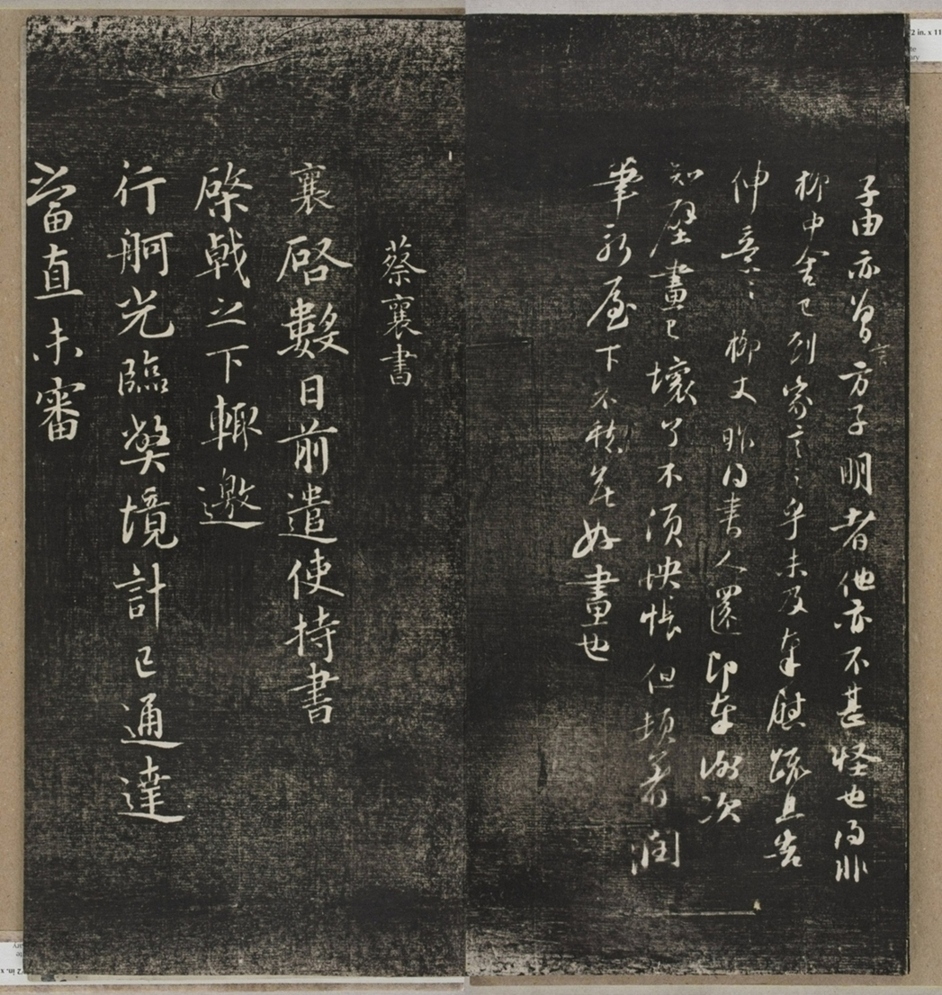 子由亦曾言方子明者他亦不甚怪也得非
柳中舍已到家言之乎未及奉慰疏且告
伸意〻柳丈昨得書人還即奉謝次
知壁畫已壞了不須怏悵但頓着潤
筆新屋下不愁無好畫也
蔡襄書
襄啓數日前遣使持書
棨戟之下輙邀
行舸光臨獘境計已通達
當直未審
2 in. x 11